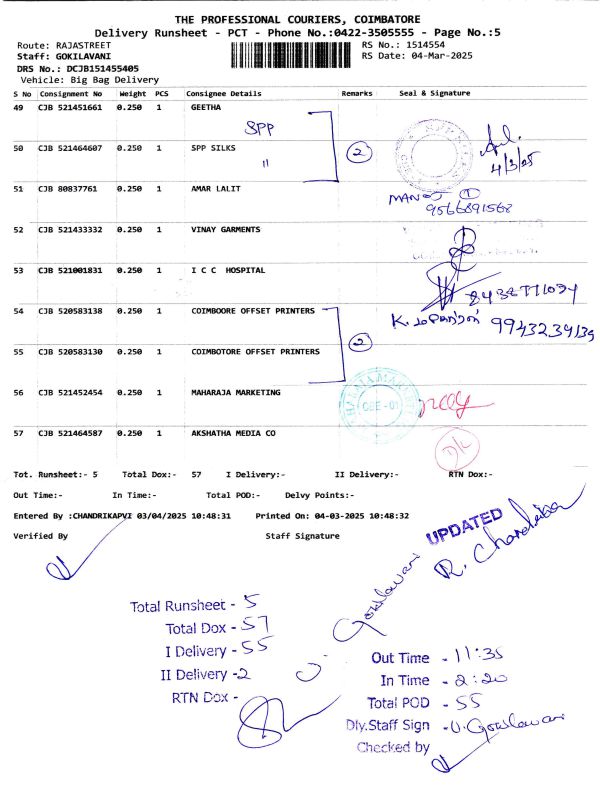 THE PROFESSIONAL COURIERS, COIMBATORE
Delivery Runsheet - PCT - Phone No.:0422-3505555 - Page No.:5
Route: RAJASTREET
RS No.: 1514554
Staff: GOKILAVANI
RS Date: 04-Mar-2025
DRS No.: DCJB151455405
Vehicle: Big Bag Delivery
S No Consignment No Weight PCS Consignee Details Remarks Seal & Signature
49 CJB 521451661 0.250 1 GEETHA
SPP
50 CJB 521464607 0.250 1 SPP SILKS
"
2
4/3/25
51 CJB 80837761 0.250 1 AMAR LALIT
MANOJ 1
9566891568
52 CJB 521433332 0.250 1 VINAY GARMENTS
53 CJB 521001831 0.250 1 I C C HOSPITAL
8438771034
54 CJB 520583138 0.250 1 COIMBOORE OFFSET PRINTERS
9943234139
2
55 CJB 520583130 0.250 1 COIMBOTORE OFFSET PRINTERS
56 CJB 521452454 0.250 1 MAHARAJA MARKETING
57 CJB 521464587 0.250 1 AKSHATHA MEDIA CO
D/L
Tot. Runsheet:- 5 Total Dox:- 57 I Delivery:- II Delivery:- RTN Dox:-
Out Time:- In Time:- Total POD:- Delvy Points:-
Entered By :CHANDRIKAPVI 03/04/2025 10:48:31 Printed On: 04-03-2025 10:48:32
Verified By Staff Signature
UPDATED
R. Chandrika
Gokilavani
Total Runsheet - 5
Total Dox - 57
I Delivery - 55
II Delivery - 2
RTN Dox -
Out Time - 11:35
In Time - 2:20
Total POD - 55
Dly.Staff Sign - U. Gokilavani
Checked by